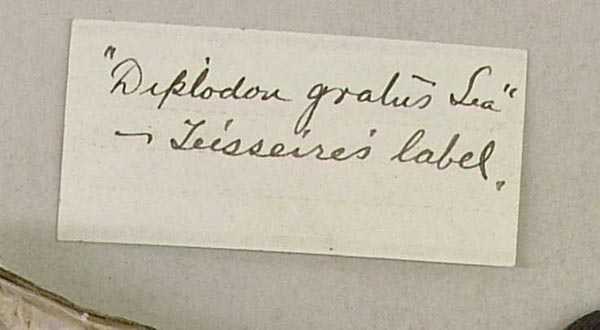 "Diplodon gratus Lea"
— Teisseire's label.